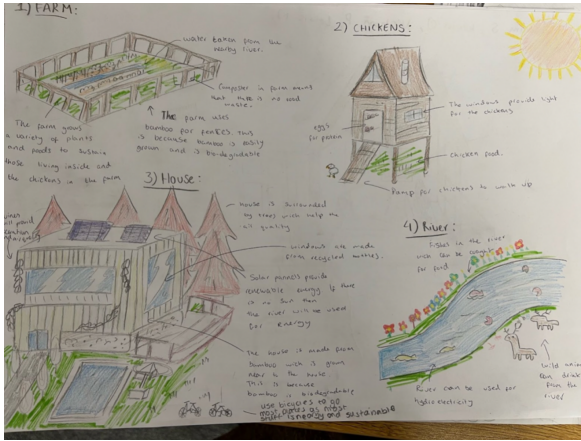 1) FARM:
water taken from the
nearby river.
Composter in farm
that there is no food
waste.
The farm grows
a variety of plants
and foods to sustain
those living inside and
the chickens in the farm
The farm uses
bamboo for fences. This
is because bamboo is easily
grown and is biodegradable
2) CHICKENS:
The windows provide light
for the chickens
eggs
for protein
chicken food.
Ramp for chickens to walk up
3) HOUSE:
House is surrounded
by trees wich help the
air quality
windows are made
from recycled bottles.
Solar pannels provide
renewable energy if there
is no sun then
the river will be used
for energy
The house is made from
bamboo wich is grown
near to the house
This is because
bamboo is biodegradable
use bicycles to go
most places as
energy and sustainable
4) River:
fishes in the river
can be
for food
wild
can drink
from the
river
River can be used for
hydroelectricity